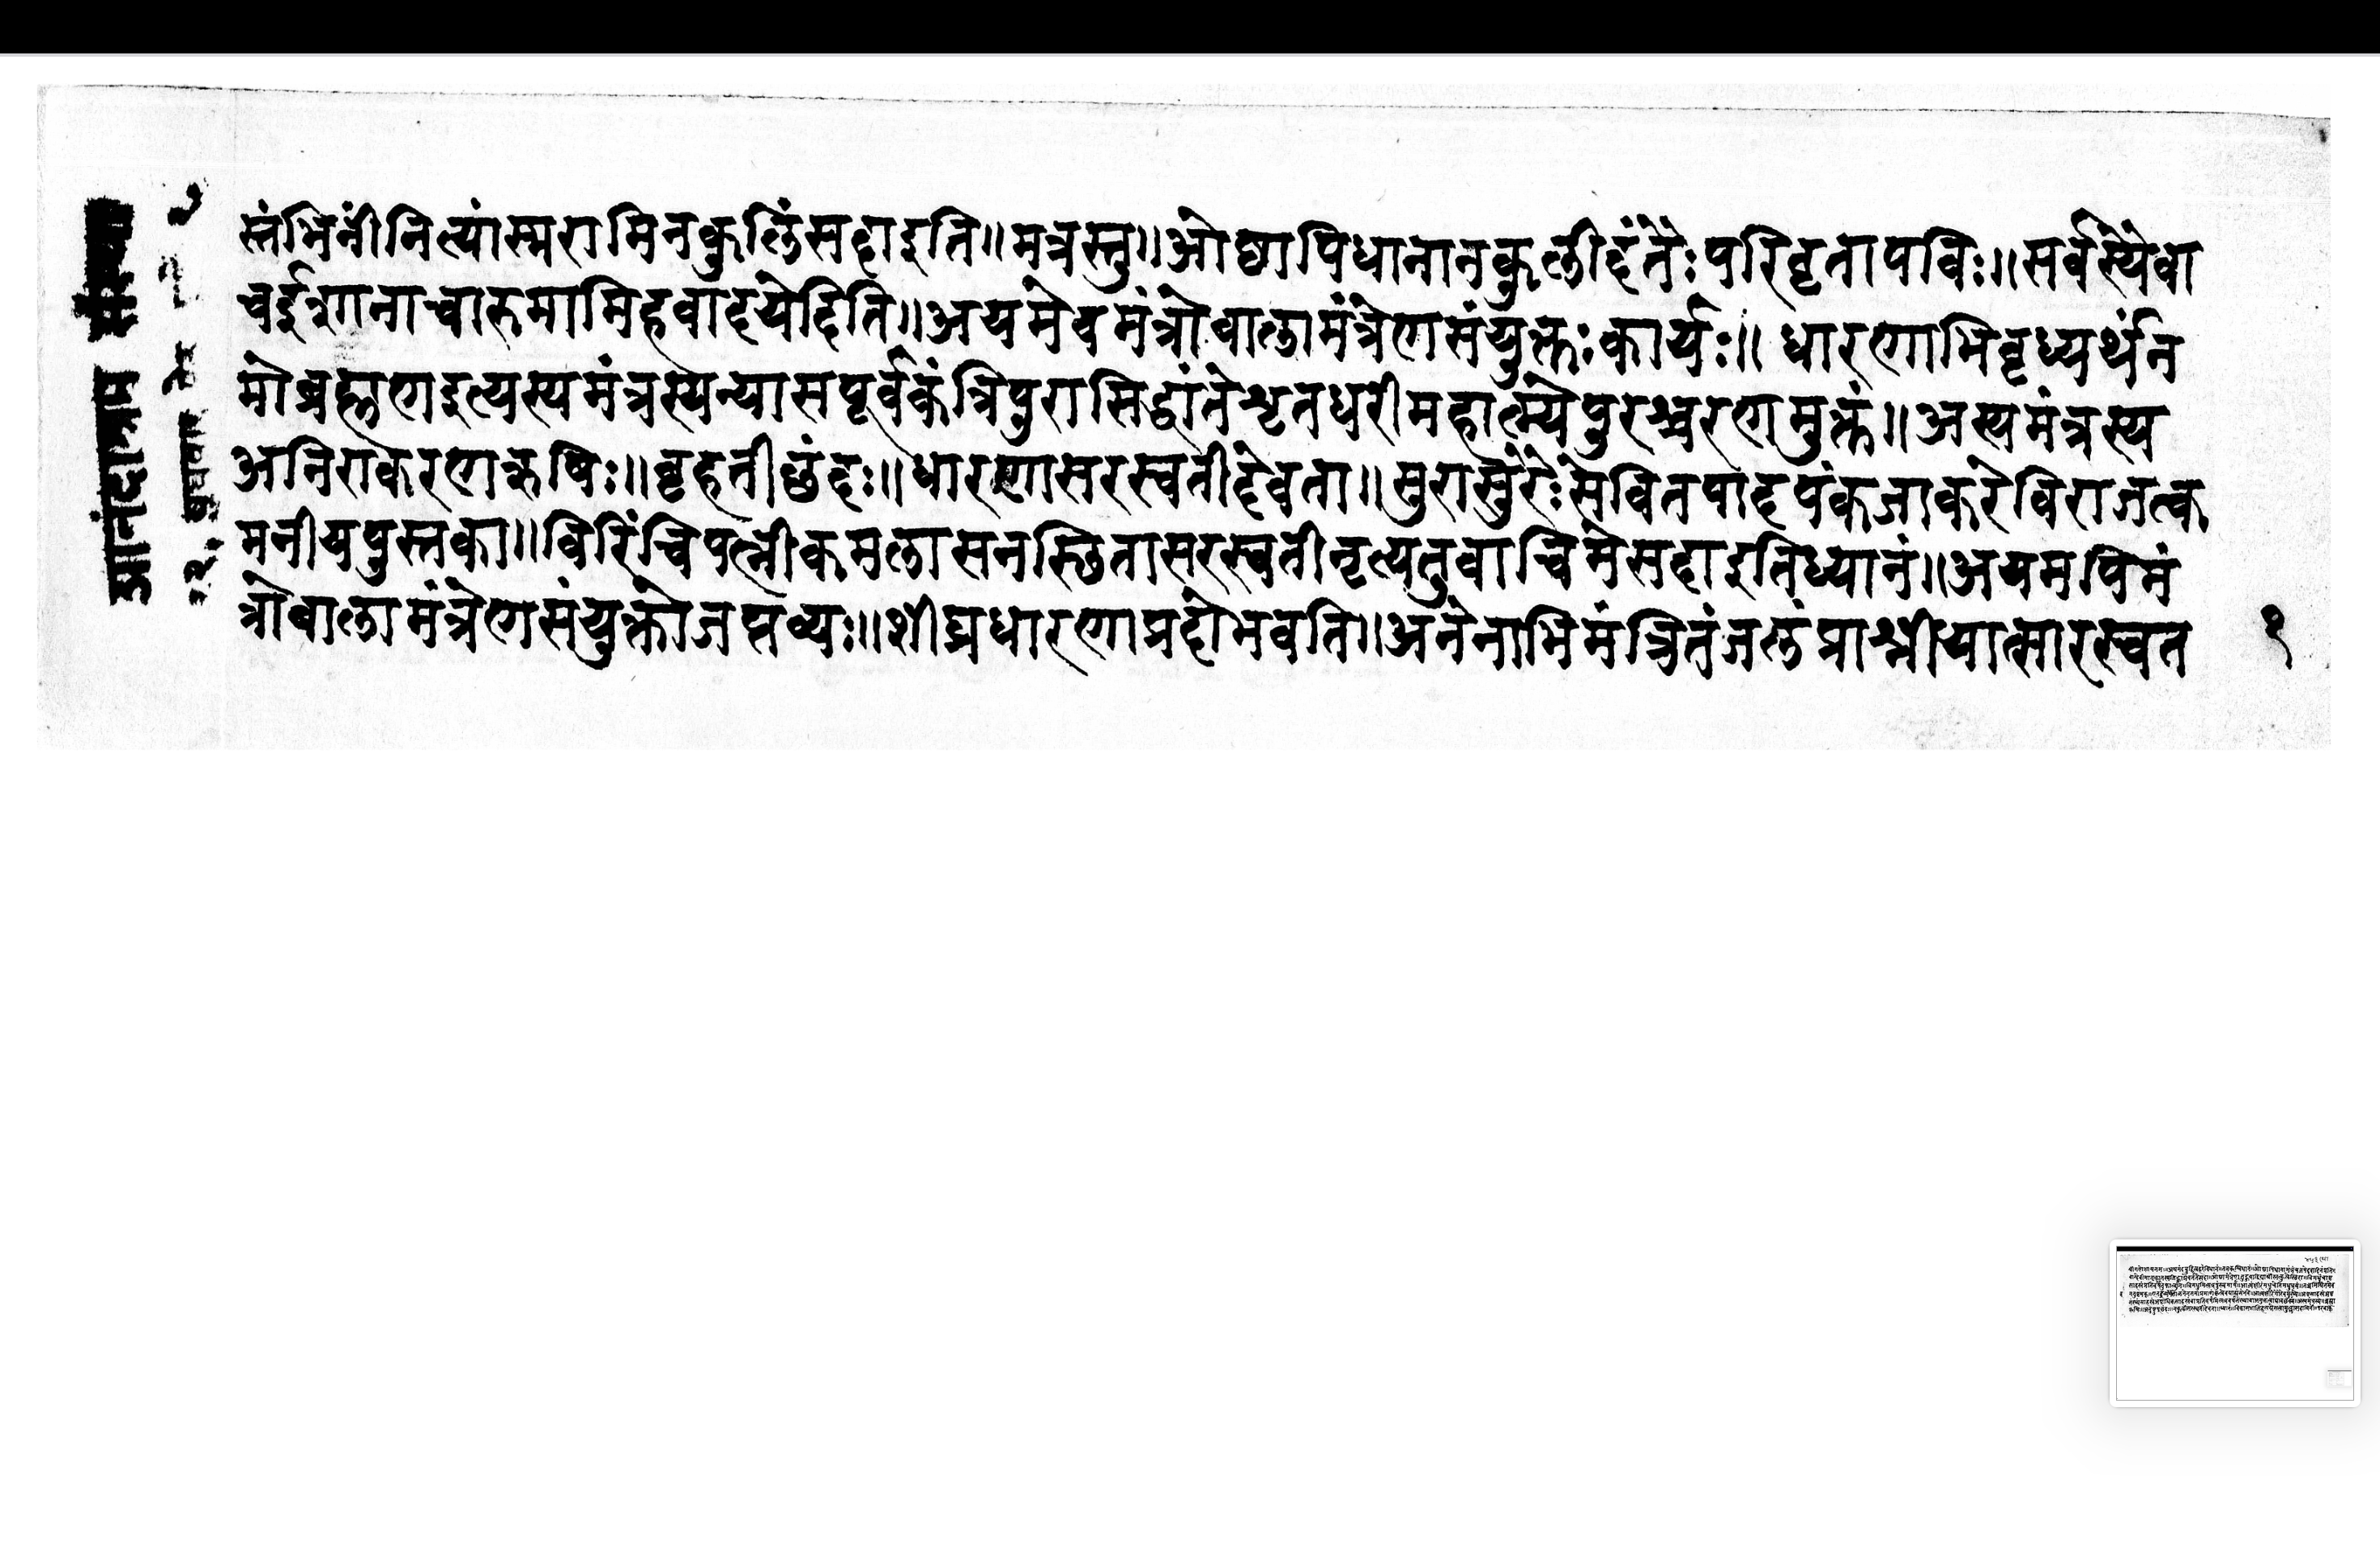 स्तंभिनीं नित्यां स्मरामि नकुलिं सदा इति॥ मन्त्रस्तु॥ ओष्ठापिधाना नकुली दंतैः परिवृता पविः॥ सर्वस्यै वा
च ईशाना चारुमामिह वादयेदिति॥ अयमेव मंत्रो बालामंत्रेण संयुक्तः कार्यः॥ धारणाभिवृध्यर्थं न
मो ब्रह्मण इत्यस्य मंत्रस्य न्यासपूर्वकं त्रिपुरासिद्धांते श्रुतधरीमहात्म्ये पुरश्चरणमुक्तं॥ अस्य मंत्रस्य
अनिराकरण ऋषिः॥ बृहती छंदः॥ धारणासरस्वती देवता॥ सुरासुरैः सेवितपादपंकजा करे विराजत्क
मनीयपुस्तका॥ विरिंचिपत्नी कमलासनस्छिता सरस्वती नृत्यतु वाचि मे सदा इति ध्यानं॥ अयमपि मं
त्रो बालामंत्रेण संयुक्तो जप्तव्यः॥ शीघ्रधारणाप्रदो भवति॥ अनेनाभिमंत्रितं जलं प्राश्नीयात्सारस्वत
१